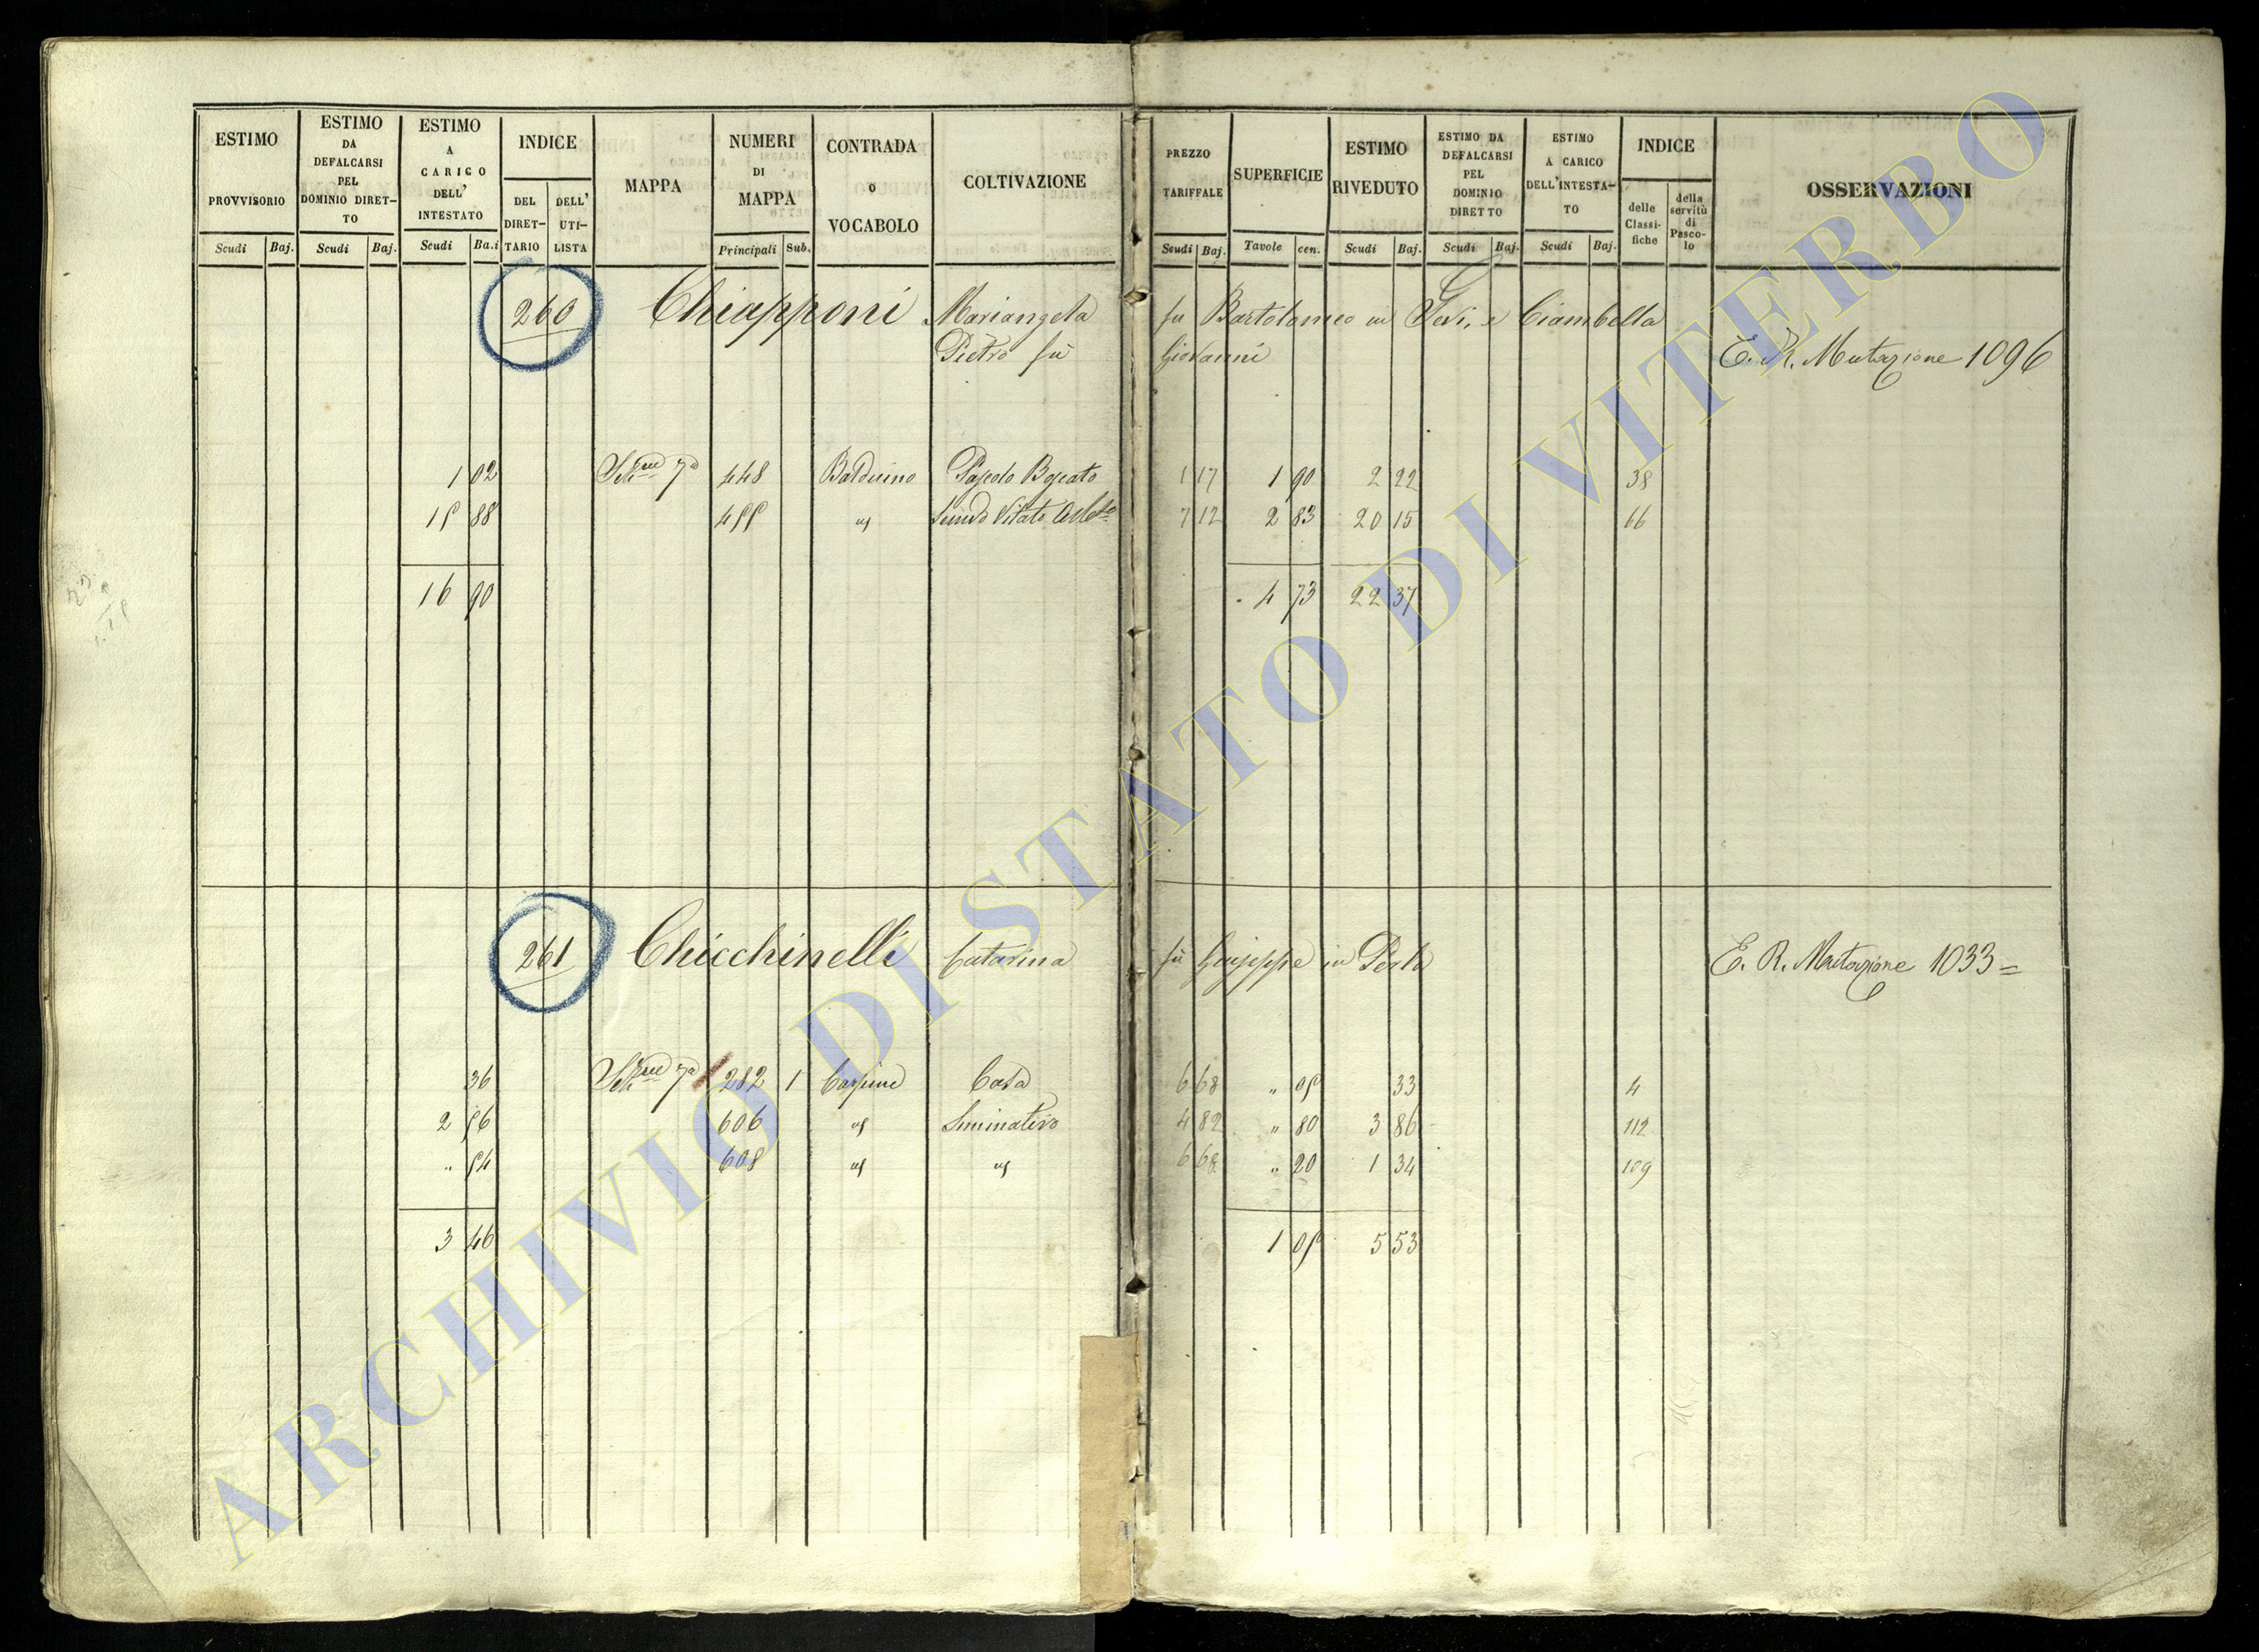 ESTIMO PROVVISORIO
ESTIMO DA DEFALCARSI PEL DOMINIO DIRET-TO
ESTIMO A CARICO DELL' INTESTATO
INDICE
DEL DIRET-TARIO
DELL' UTI-LISTA
MAPPA
NUMERI DI MAPPA
CONTRADA o VOCABOLO
COLTIVAZIONE
PREZZO TARIFFALE
SUPERFICIE
ESTIMO RIVEDUTO
ESTIMO DA DEFALCARSI PEL DOMINIO DIRETTO
ESTIMO A CARICO DELL'INTESTA-TO
INDICE
delle Classi-fiche
della servitù di Pasco-lo
OSSERVAZIONI
Scudi Baj. Scudi Baj. Scudi Ba.i Principali Sub. Scudi Baj. Tavole cen. Scudi Baj. Scudi Baj. Scudi Baj.
260 Chiapponi Mariangela fu Bartolomeo in e Ciambella
Pietro fù Giovanni E. R. Mutazione 1096
1 02 448 Balduino Pascolo Boscato 1 17 1 90 2 22 38
15 88 455 " Vitato 7 12 2 83 20 15 66
16 90 4 73 22 37
261 Chicchinelli Catarina fù Giuseppe in Perla E. R. Mutazione 1033=
36 282 1 Casa 6 68 " 05 33 4
2 56 606 " Seminativo 4 82 " 80 3 86 112
" 54 608 " " 6 68 " 20 1 34 109
3 46 1 05 5 53
ARCHIVIO DI STATO DI VITERBO